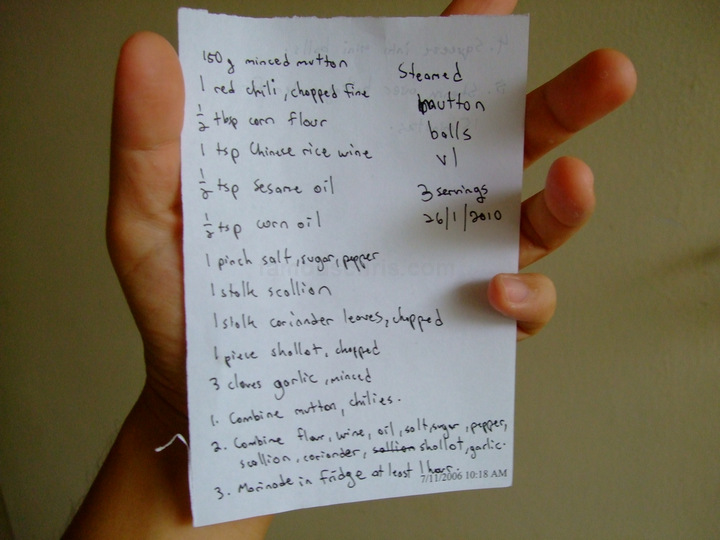 150g minced mutton
1 red chili, chopped fine
1/2 tbsp corn flour
1 tsp Chinese rice wine
1/2 tsp sesame oil
1/2 tsp corn oil
1 pinch salt, sugar, pepper
1 stalk scallion
1 stalk coriander leaves, chopped
1 piece shallot, chopped
3 cloves garlic, minced
1. Combine mutton, chilies.
2. Combine flour, wine, oil, salt, sugar, pepper,
scallion, coriander, scallion shallot, garlic.
3. Marinade in fridge at least 1 hour.
Steamed
mutton
balls
v1
3 servings
26/1/2010
7/11/2006 10:18 AM